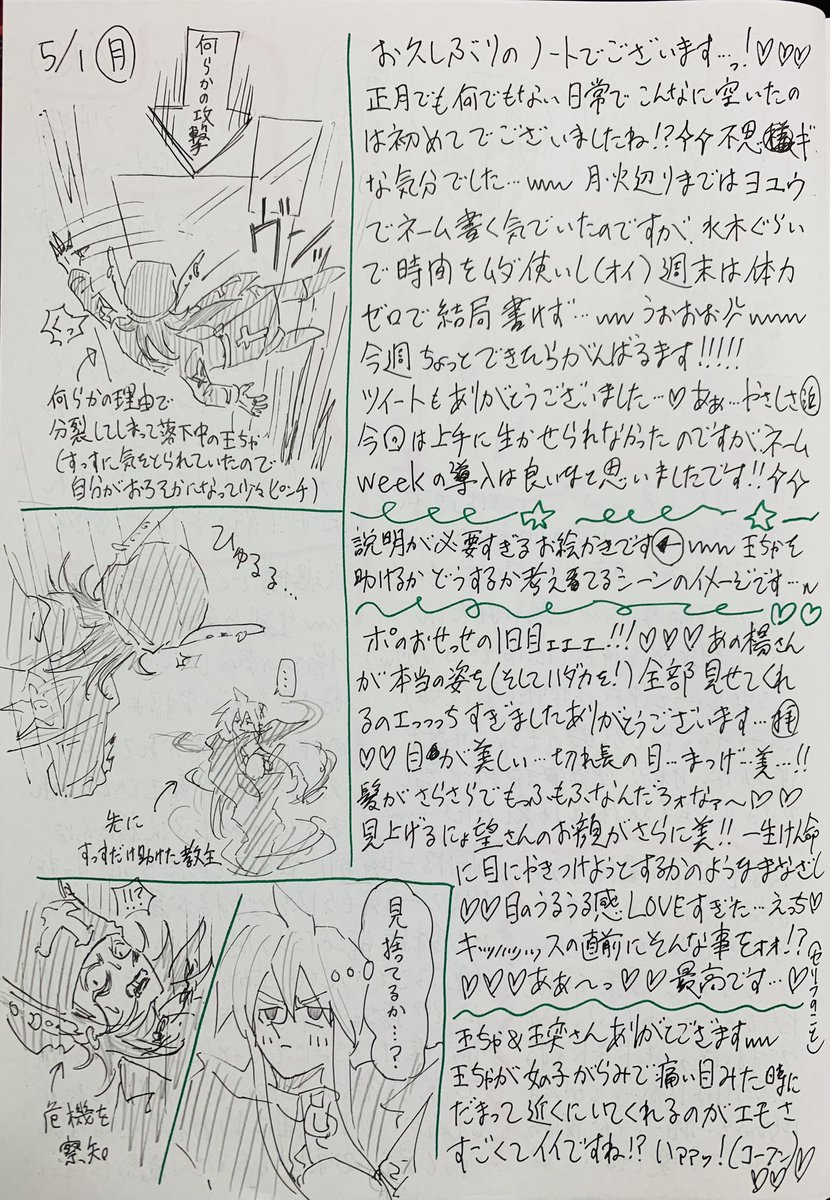 5/1 月
何らかの攻撃
ヴン
くっ
何らかの理由で
分裂してしまって落下中の王ちゃ
(すっすに気をとられていたので
自分がおろそかになって少々ピンチ)
ひゅるる…
…
先に
すっすだけ助けた教主
!?
危機を
察知。
見捨てるか…?
お久しぶりのノートでございます…っ!♡♡♡
正月でも何でもない日常でこんなに空いたの
は初めてでございましたね!?不思ギ
な気分でした… 月・火辺りまではヨユウ
でネーム書く気でいたのですが、水木ぐらい
で時間をムダ使いし(オイ)週末は体力
ゼロで結局書けず… うおおお
今週ちょっとできたらがんばるます!!!!!
ツイートもありがとうございました…♡あぁ…やさしさ
今回は上手に生かせられなかったのですがネーム
weekの導入は良いなと思いましたです!!
説明が必要すぎるお絵かきです← 王ちゃを
助けるかどうするか考えてるシーンのイメージです…
ポのおせっせの1日目ェェェ!!!♡♡♡あの楊さん
が本当の姿を(そしてハダカを!)全部見せてくれ
るのエっっっちすぎましたありがとうございます…拝
♡♡目が美しい…切れ長の目…まつげ…美…!!
髪がさらさらでもっふもふなんだろォなァ〜♡♡
見上げるにょ望さんのお顔がさらに美!!一生けん命
に目にやきつけようとするかのようなまなざし
♡♡目のうるうる感LOVEすぎた…えっち♡
キッッッッスの直前にそんな事をォォ!?
(セリフのこと)
♡♡♡あぁ〜っ♡♡最高です…♡
王ちゃ&王奕さんありがとでざます
王ちゃが女の子がらみで痛い目みた時に
だまって近くにいてくれるのがエモさ
すごくてイイですね!?いァァッ!(コーフン)♡
♡♡